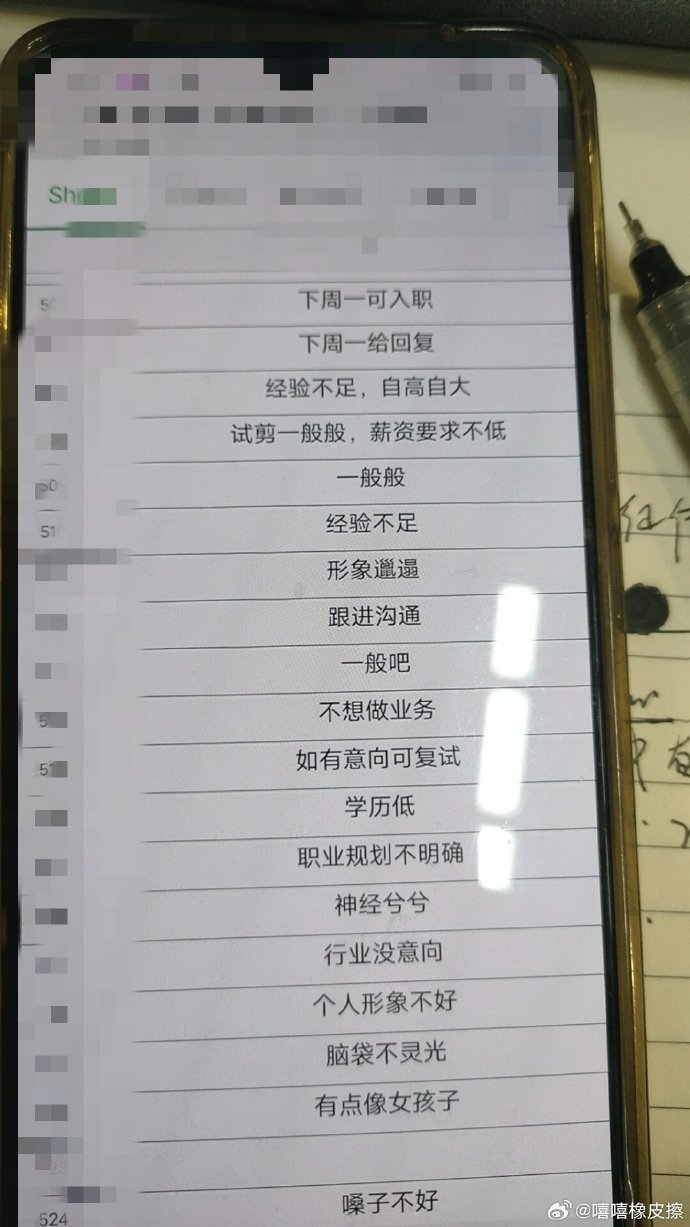 She
下周一可入职
下周一给回复
经验不足，自高自大
试剪一般般，薪资要求不低
一般般
经验不足
51
形象邋遢
跟进沟通
一般吧
不想做业务
如有意向可复试
51
学历低
职业规划不明确
神经兮兮
行业没意向
个人形象不好
脑袋不灵光
有点像女孩子
嗓子不好
524
@嘻嘻橡皮擦